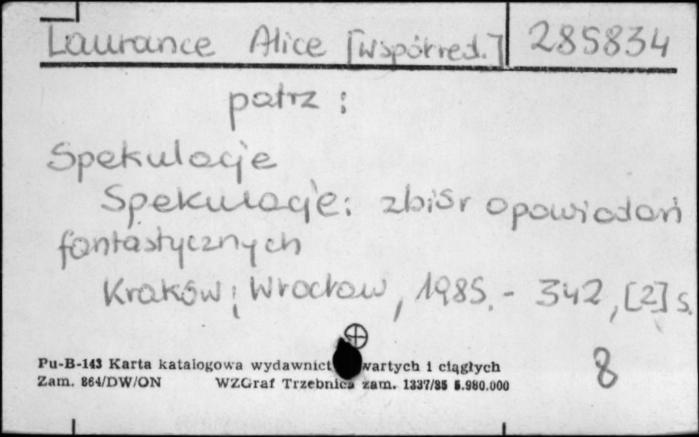 Laurance Alice [współred.] 285834
patrz:
Spekulacje
Spekulacje: zbiór opowiadań
fantastycznych
Kraków; Wrocław, 1985. - 342, [2] s.
8
Pu-B-143 Karta katalogowa wydawnict wartych i ciągłych
Zam. 864/DW/ON WZGraf Trzebnica zam. 1337/85 5.980.000